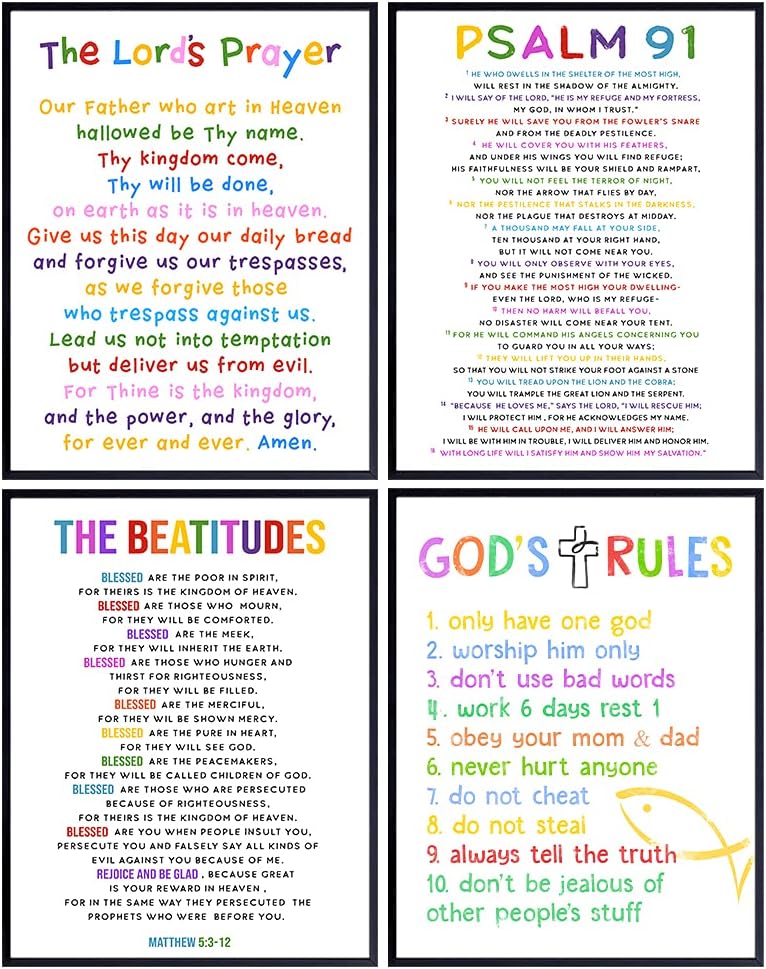 The Lord's Prayer
Our Father who art in Heaven
hallowed be Thy name.
Thy kingdom come,
Thy will be done,
on earth as it is in heaven.
Give us this day our daily bread
and forgive us our trespasses,
as we forgive those
who trespass against us.
Lead us not into temptation
but deliver us from evil.
For Thine is the kingdom,
and the power, and the glory,
for ever and ever. Amen.
PSALM 91
1 HE WHO DWELLS IN THE SHELTER OF THE MOST HIGH,
WILL REST IN THE SHADOW OF THE ALMIGHTY.
2 I WILL SAY OF THE LORD, "HE IS MY REFUGE AND MY FORTRESS,
MY GOD, IN WHOM I TRUST."
3 SURELY HE WILL SAVE YOU FROM THE FOWLER'S SNARE
AND FROM THE DEADLY PESTILENCE.
4 HE WILL COVER YOU WITH HIS FEATHERS,
AND UNDER HIS WINGS YOU WILL FIND REFUGE;
HIS FAITHFULNESS WILL BE YOUR SHIELD AND RAMPART,
5 YOU WILL NOT FEEL THE TERROR OF NIGHT,
NOR THE ARROW THAT FLIES BY DAY,
6 NOR THE PESTILENCE THAT STALKS IN THE DARKNESS,
NOR THE PLAGUE THAT DESTROYS AT MIDDAY.
7 A THOUSAND MAY FALL AT YOUR SIDE,
TEN THOUSAND AT YOUR RIGHT HAND,
BUT IT WILL NOT COME NEAR YOU.
8 YOU WILL ONLY OBSERVE WITH YOUR EYES,
AND SEE THE PUNISHMENT OF THE WICKED.
9 IF YOU MAKE THE MOST HIGH YOUR DWELLING-
EVEN THE LORD, WHO IS MY REFUGE-
10 THEN NO HARM WILL BEFALL YOU,
NO DISASTER WILL COME NEAR YOUR TENT.
11 FOR HE WILL COMMAND HIS ANGELS CONCERNING YOU
TO GUARD YOU IN ALL YOUR WAYS;
12 THEY WILL LIFT YOU UP IN THEIR HANDS,
SO THAT YOU WILL NOT STRIKE YOUR FOOT AGAINST A STONE
13 YOU WILL TREAD UPON THE LION AND THE COBRA;
YOU WILL TRAMPLE THE GREAT LION AND THE SERPENT.
14 "BECAUSE HE LOVES ME," SAYS THE LORD, "I WILL RESCUE HIM;
I WILL PROTECT HIM, FOR HE ACKNOWLEDGES MY NAME.
15 HE WILL CALL UPON ME, AND I WILL ANSWER HIM;
I WILL BE WITH HIM IN TROUBLE, I WILL DELIVER HIM AND HONOR HIM.
16 WITH LONG LIFE WILL I SATISFY HIM AND SHOW HIM MY SALVATION."
THE BEATITUDES
BLESSED ARE THE POOR IN SPIRIT,
FOR THEIRS IS THE KINGDOM OF HEAVEN.
BLESSED ARE THOSE WHO MOURN,
FOR THEY WILL BE COMFORTED.
BLESSED ARE THE MEEK,
FOR THEY WILL INHERIT THE EARTH.
BLESSED ARE THOSE WHO HUNGER AND
THIRST FOR RIGHTEOUSNESS,
FOR THEY WILL BE FILLED.
BLESSED ARE THE MERCIFUL,
FOR THEY WILL BE SHOWN MERCY.
BLESSED ARE THE PURE IN HEART,
FOR THEY WILL SEE GOD.
BLESSED ARE THE PEACEMAKERS,
FOR THEY WILL BE CALLED CHILDREN OF GOD.
BLESSED ARE THOSE WHO ARE PERSECUTED
BECAUSE OF RIGHTEOUSNESS,
FOR THEIRS IS THE KINGDOM OF HEAVEN.
BLESSED ARE YOU WHEN PEOPLE INSULT YOU,
PERSECUTE YOU AND FALSELY SAY ALL KINDS OF
EVIL AGAINST YOU BECAUSE OF ME.
REJOICE AND BE GLAD , BECAUSE GREAT
IS YOUR REWARD IN HEAVEN ,
FOR IN THE SAME WAY THEY PERSECUTED THE
PROPHETS WHO WERE BEFORE YOU.
MATTHEW 5:3-12
GOD'S RULES
1. only have one god
2. worship him only
3. don't use bad words
4. work 6 days rest 1
5. obey your mom & dad
6. never hurt anyone
7. do not cheat
8. do not steal
9. always tell the truth
10. don't be jealous of
other people's stuff